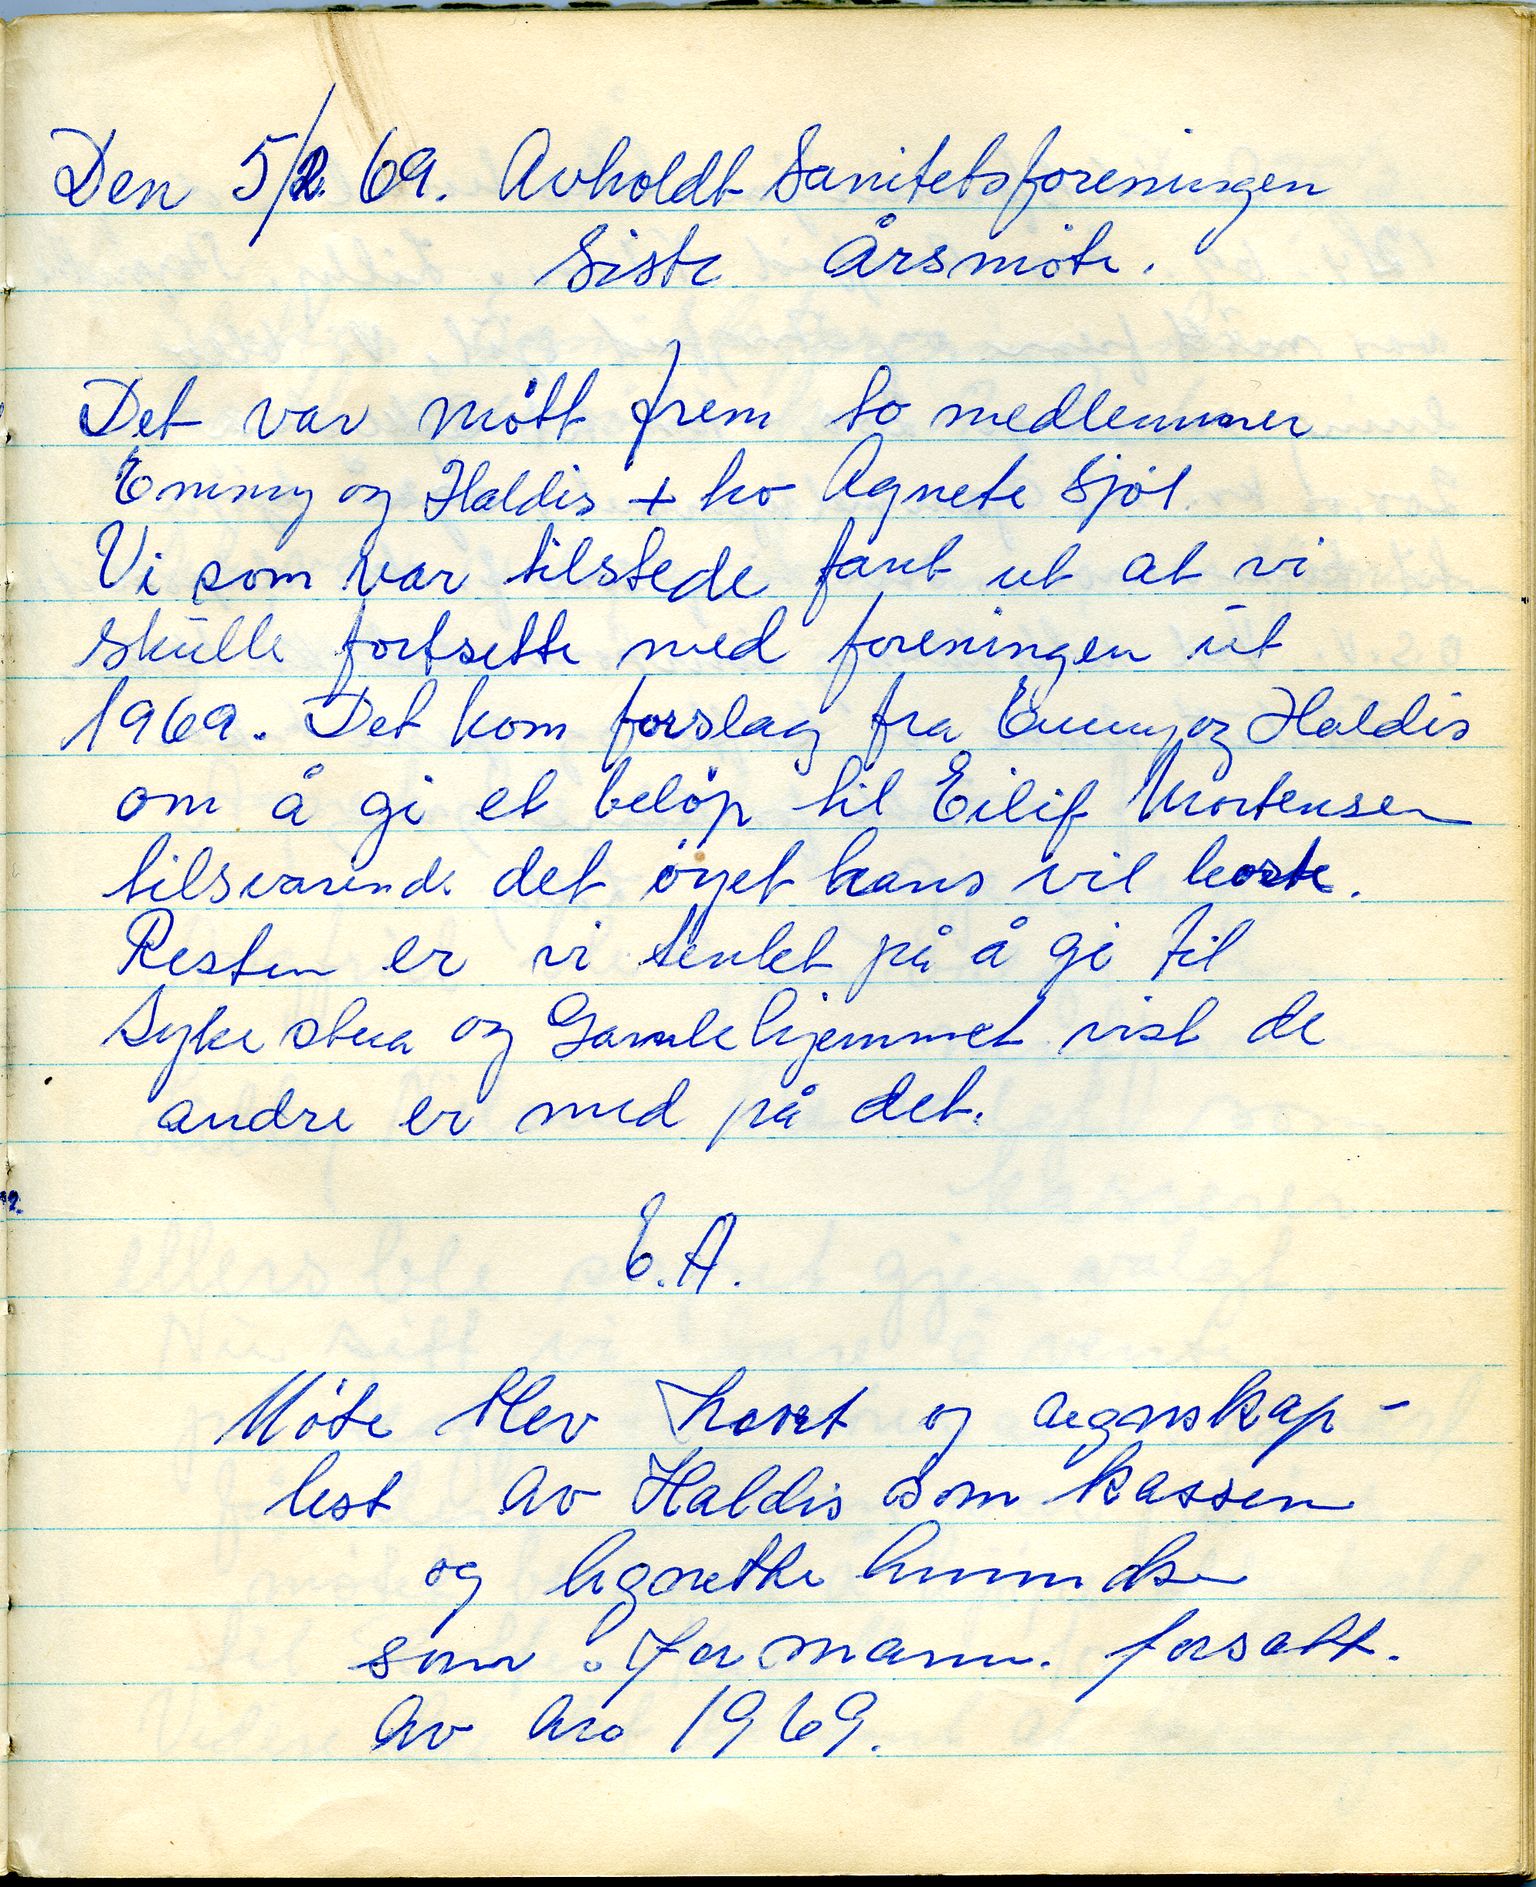 Den 5/2 69. Avholdt Sanitetsforeningen
Siste Årsmöte.
Det var mött frem to medlemmer
Emmy og Haldis + ho Agnete Sjöl
Vi som var tilstede fant ut at vi
skulle fortsette med foreningen ut
1969. Det kom forslag fra Emmy og Haldis
om å gi et belöp til Eilif Mortensen
tilsvarende det öyet hans vil koste.
Resten er vi tenkt på å gi til
Sykestua og Gamlehjemmet vist de
andre er med på det.
E.A.
Möte blev hevet og regnskap-
lest av Haldis som kassen
og Agnethe
som formann. forsatt.
av Aro 1969.